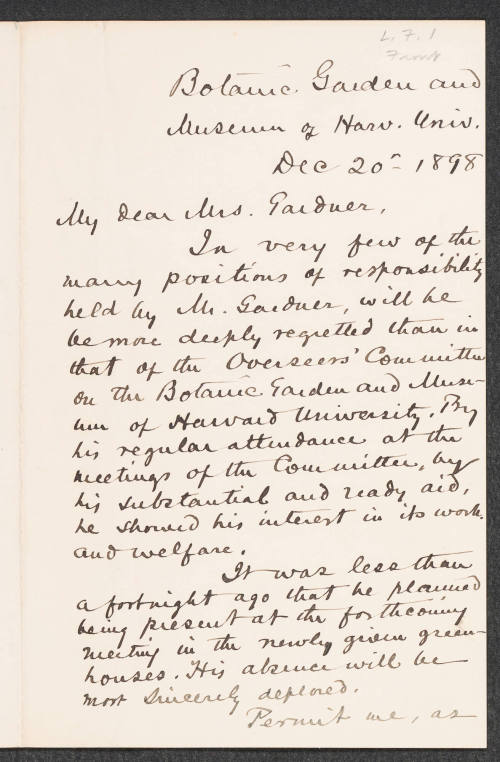 L. F. 1
Front
Botanic Garden and
Museum of Harv. Univ.
Dec 20- 1898
My dear Mrs. Gardner,
In very few of the
many positions of responsibility
held by Mr. Gardner, will he
be more deeply regretted than in
that of the Overseers' Committee
on the Botanic Garden and Muse-
um of Harvard University. By
his regular attendance at the
meetings of the Committee, by
his substantial and ready aid,
he showed his interest in its work
and welfare.
It was less than
a fortnight ago that he planned
being present at the forthcoming
meeting in the newly given green-
houses. His absence will be
most sincerely deplored.
Permit me, as